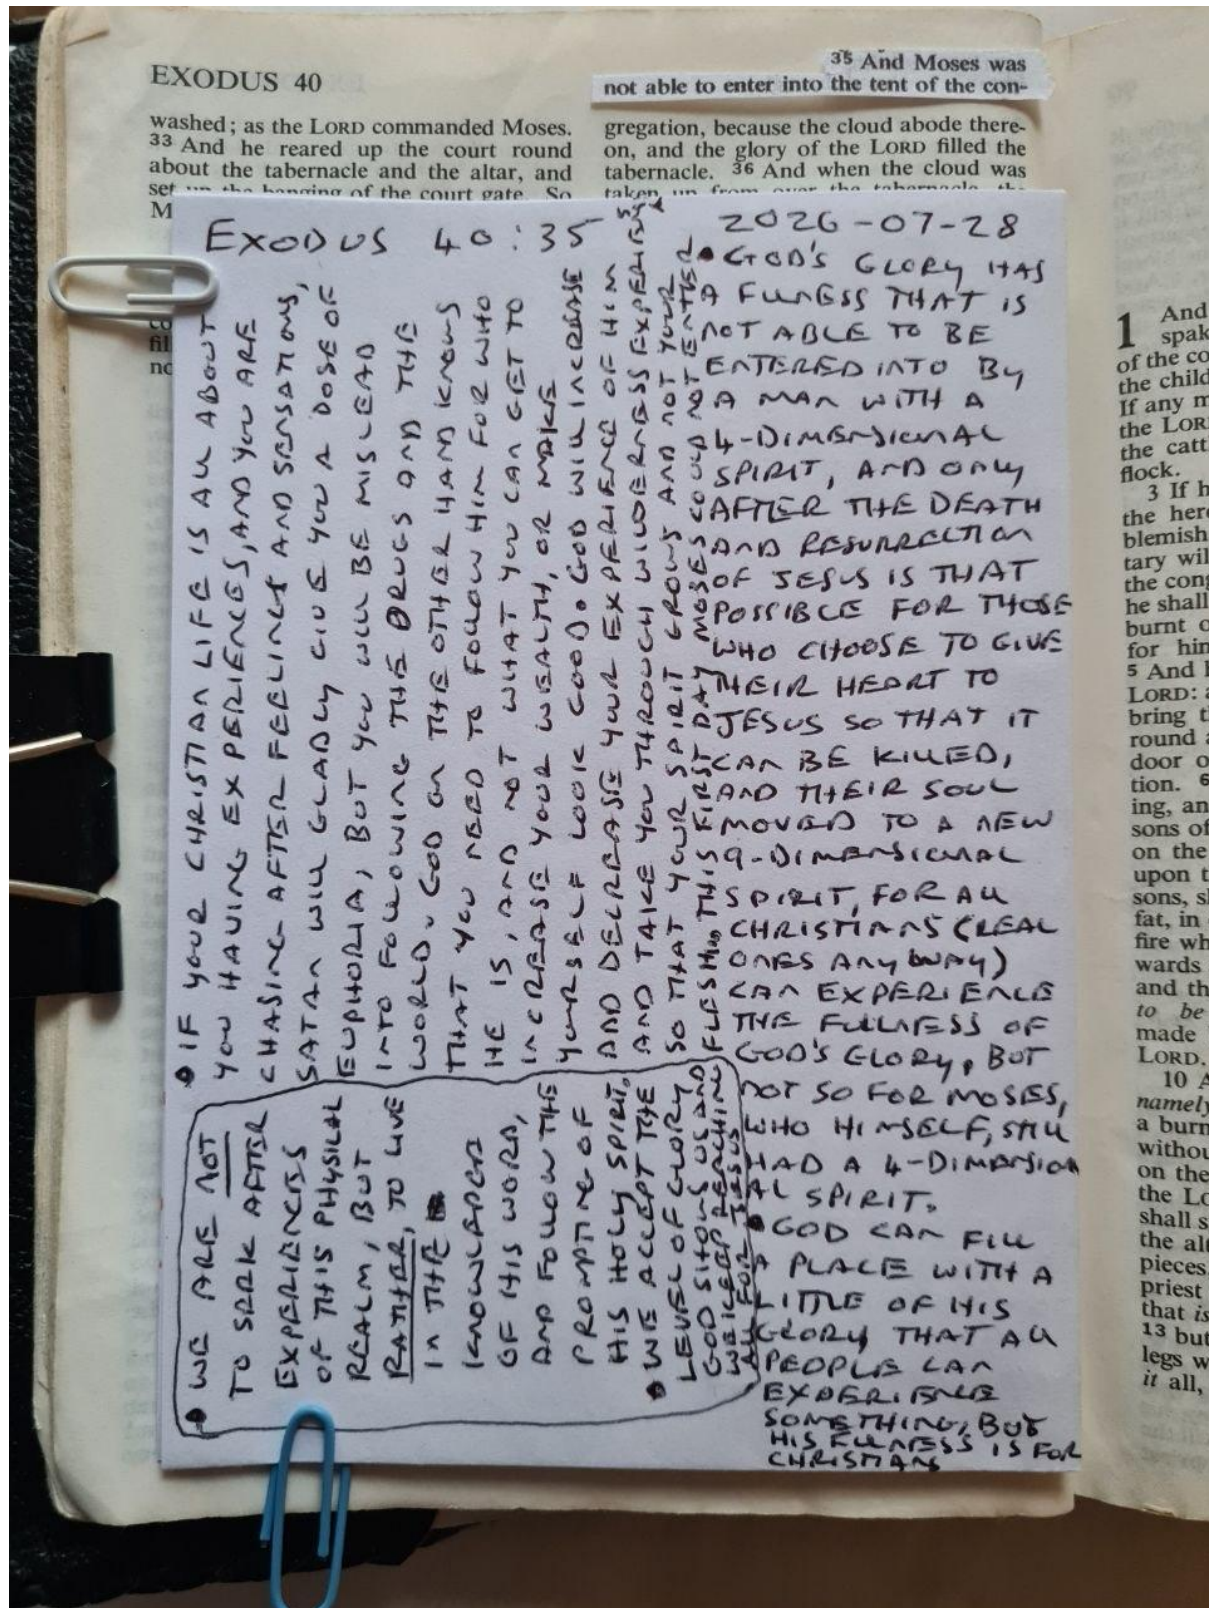 EXODUS 40
35 And Moses was
not able to enter into the tent of the con-
washed; as the LORD commanded Moses.
33 And he reared up the court round
about the tabernacle and the altar, and
set up the hanging of the court gate. So
M
co
fil
no
gregation, because the cloud abode there-
on, and the glory of the LORD filled the
tabernacle. 36 And when the cloud was
taken up from over the tabernacle, the
EXODUS 40:35
2026-07-28
• GOD'S GLORY HAS
A FULNESS THAT IS
NOT ABLE TO BE
ENTERED INTO BY
A MAN WITH A
4-DIMENSIONAL
SPIRIT, AND ONLY
AFTER THE DEATH
AND RESURRECTION
OF JESUS IS THAT
POSSIBLE FOR THOSE
WHO CHOOSE TO GIVE
THEIR HEART TO
JESUS SO THAT IT
CAN BE KILLED,
AND THEIR SOUL
MOVED TO A NEW
9-DIMENSIONAL
SPIRIT, FOR ALL
CHRISTIANS (REAL
ONES ANYWAY)
CAN EXPERIENCE
THE FULLNESS OF
GOD'S GLORY, BUT
NOT SO FOR MOSES,
WHO HIMSELF, STILL
HAD A 4-DIMENSION
AL SPIRIT.
• GOD CAN FILL
A PLACE WITH A
LITTLE OF HIS
GLORY THAT ALL
PEOPLE CAN
EXPERIENCE
SOMETHING, BUT
HIS FULNESS IS FOR
CHRISTIANS
• IF YOUR CHRISTIAN LIFE IS ALL ABOUT
YOU HAVING EXPERIENCES, AND YOU ARE
CHASING AFTER FEELINGS AND SENSATIONS,
SATAN WILL GLADLY GIVE YOU A DOSE OF
EUPHORIA, BUT YOU WILL BE MISLEAD
INTO FOLLOWING THE DRUGS AND THE
WORLD. GOD ON THE OTHER HAND KNOWS
THAT YOU NEED TO FOLLOW HIM FOR WHO
HE IS, AND NOT WHAT YOU CAN GET TO
INCREASE YOUR WEALTH, OR MAKE
YOURSELF LOOK GOOD. GOD WILL INCREASE
AND DECREASE YOUR EXPERIENCE OF HIM
AND TAKE YOU THROUGH WILDERNESS EXPERIENCES
SO THAT YOUR SPIRIT GROWS AND NOT YOUR
FLESH. THIS FIRST DAY MOSES COULD NOT ENTER
• WE ARE NOT
TO SEEK AFTER
EXPERIENCES
OF THIS PHYSICAL
REALM, BUT
RATHER, TO LIVE
IN THE
KNOWLEDGE
OF HIS WORD,
AND FOLLOW THE
PROMPTING OF
HIS HOLY SPIRIT.
• WE ACCEPT THE
LEVEL OF GLORY
GOD SHOWS US AND
WE KEEP REACHING
ALL FOR JESUS
1 And
spak
of the co
the child
If any m
the LOR
the catt
flock.
3 If h
the here
blemish
tary wil
the cong
he shall
burnt o
for him
5 And h
LORD: a
bring th
round a
door o
tion. 6
ing, an
sons of
on the
upon t
sons, sh
fat, in
fire wh
wards
and th
to be
made
LORD.
10 A
namely
a burn
withou
on the
the Lo
shall s
the alt
pieces
priest
that is
13 but
legs w
it all,